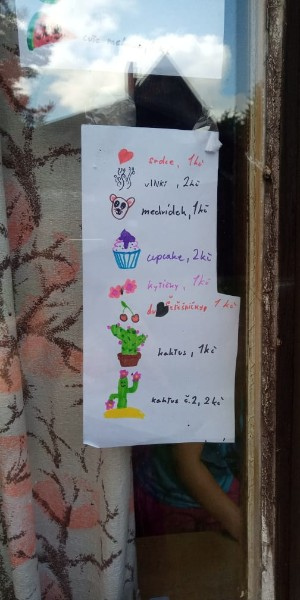 srdce, 1kč
vlnky, 2kč
medvídek, 1kč
cupcake, 2kč
kytičky, 1kč
třešničky, 1kč
kaktus, 1kč
kaktus č.2, 2kč